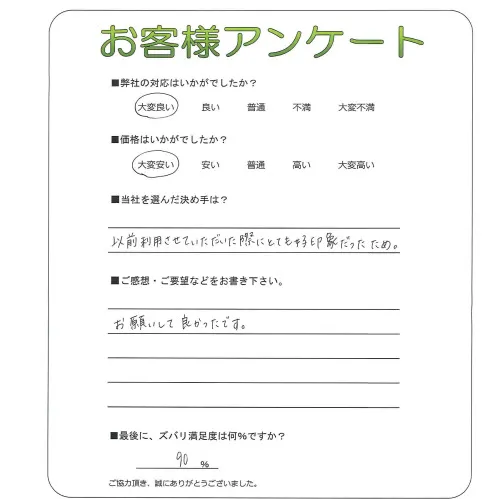 お客様アンケート
■弊社の対応はいかがでしたか？
大変良い 良い 普通 不満 大変不満
■価格はいかがでしたか？
大変安い 安い 普通 高い 大変高い
■当社を選んだ決め手は？
以前利用させていただいた際にとても好印象だったため。
■ご感想・ご要望などをお書き下さい。
お願いして良かったです。
■最後に、ズバリ満足度は何％ですか？
90 ％
ご協力頂き、誠にありがとうございました。